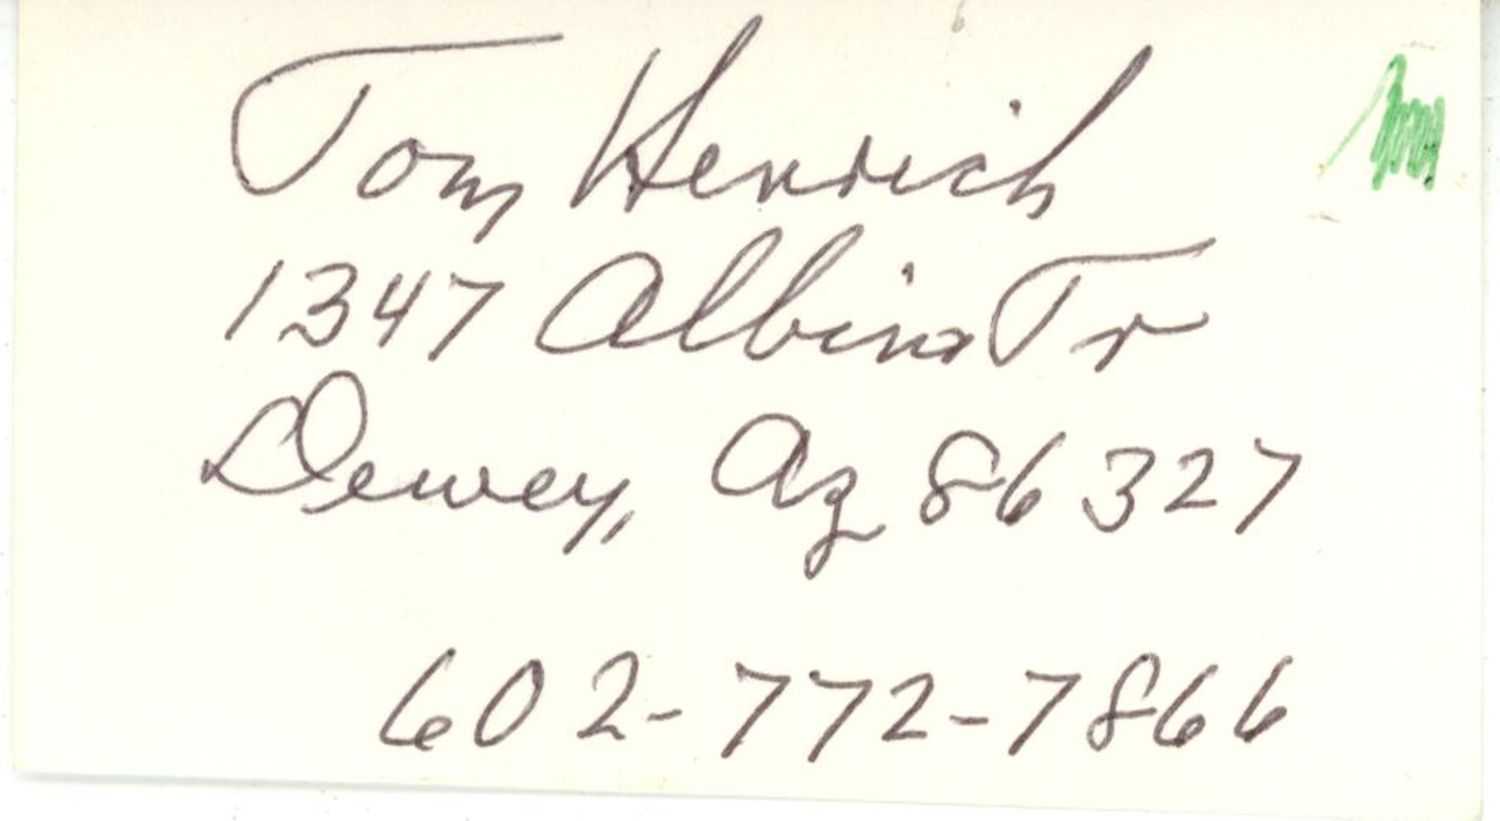 Tom Henrich
1347 Albino Tr
Dewey, Az 86327
602-772-7866